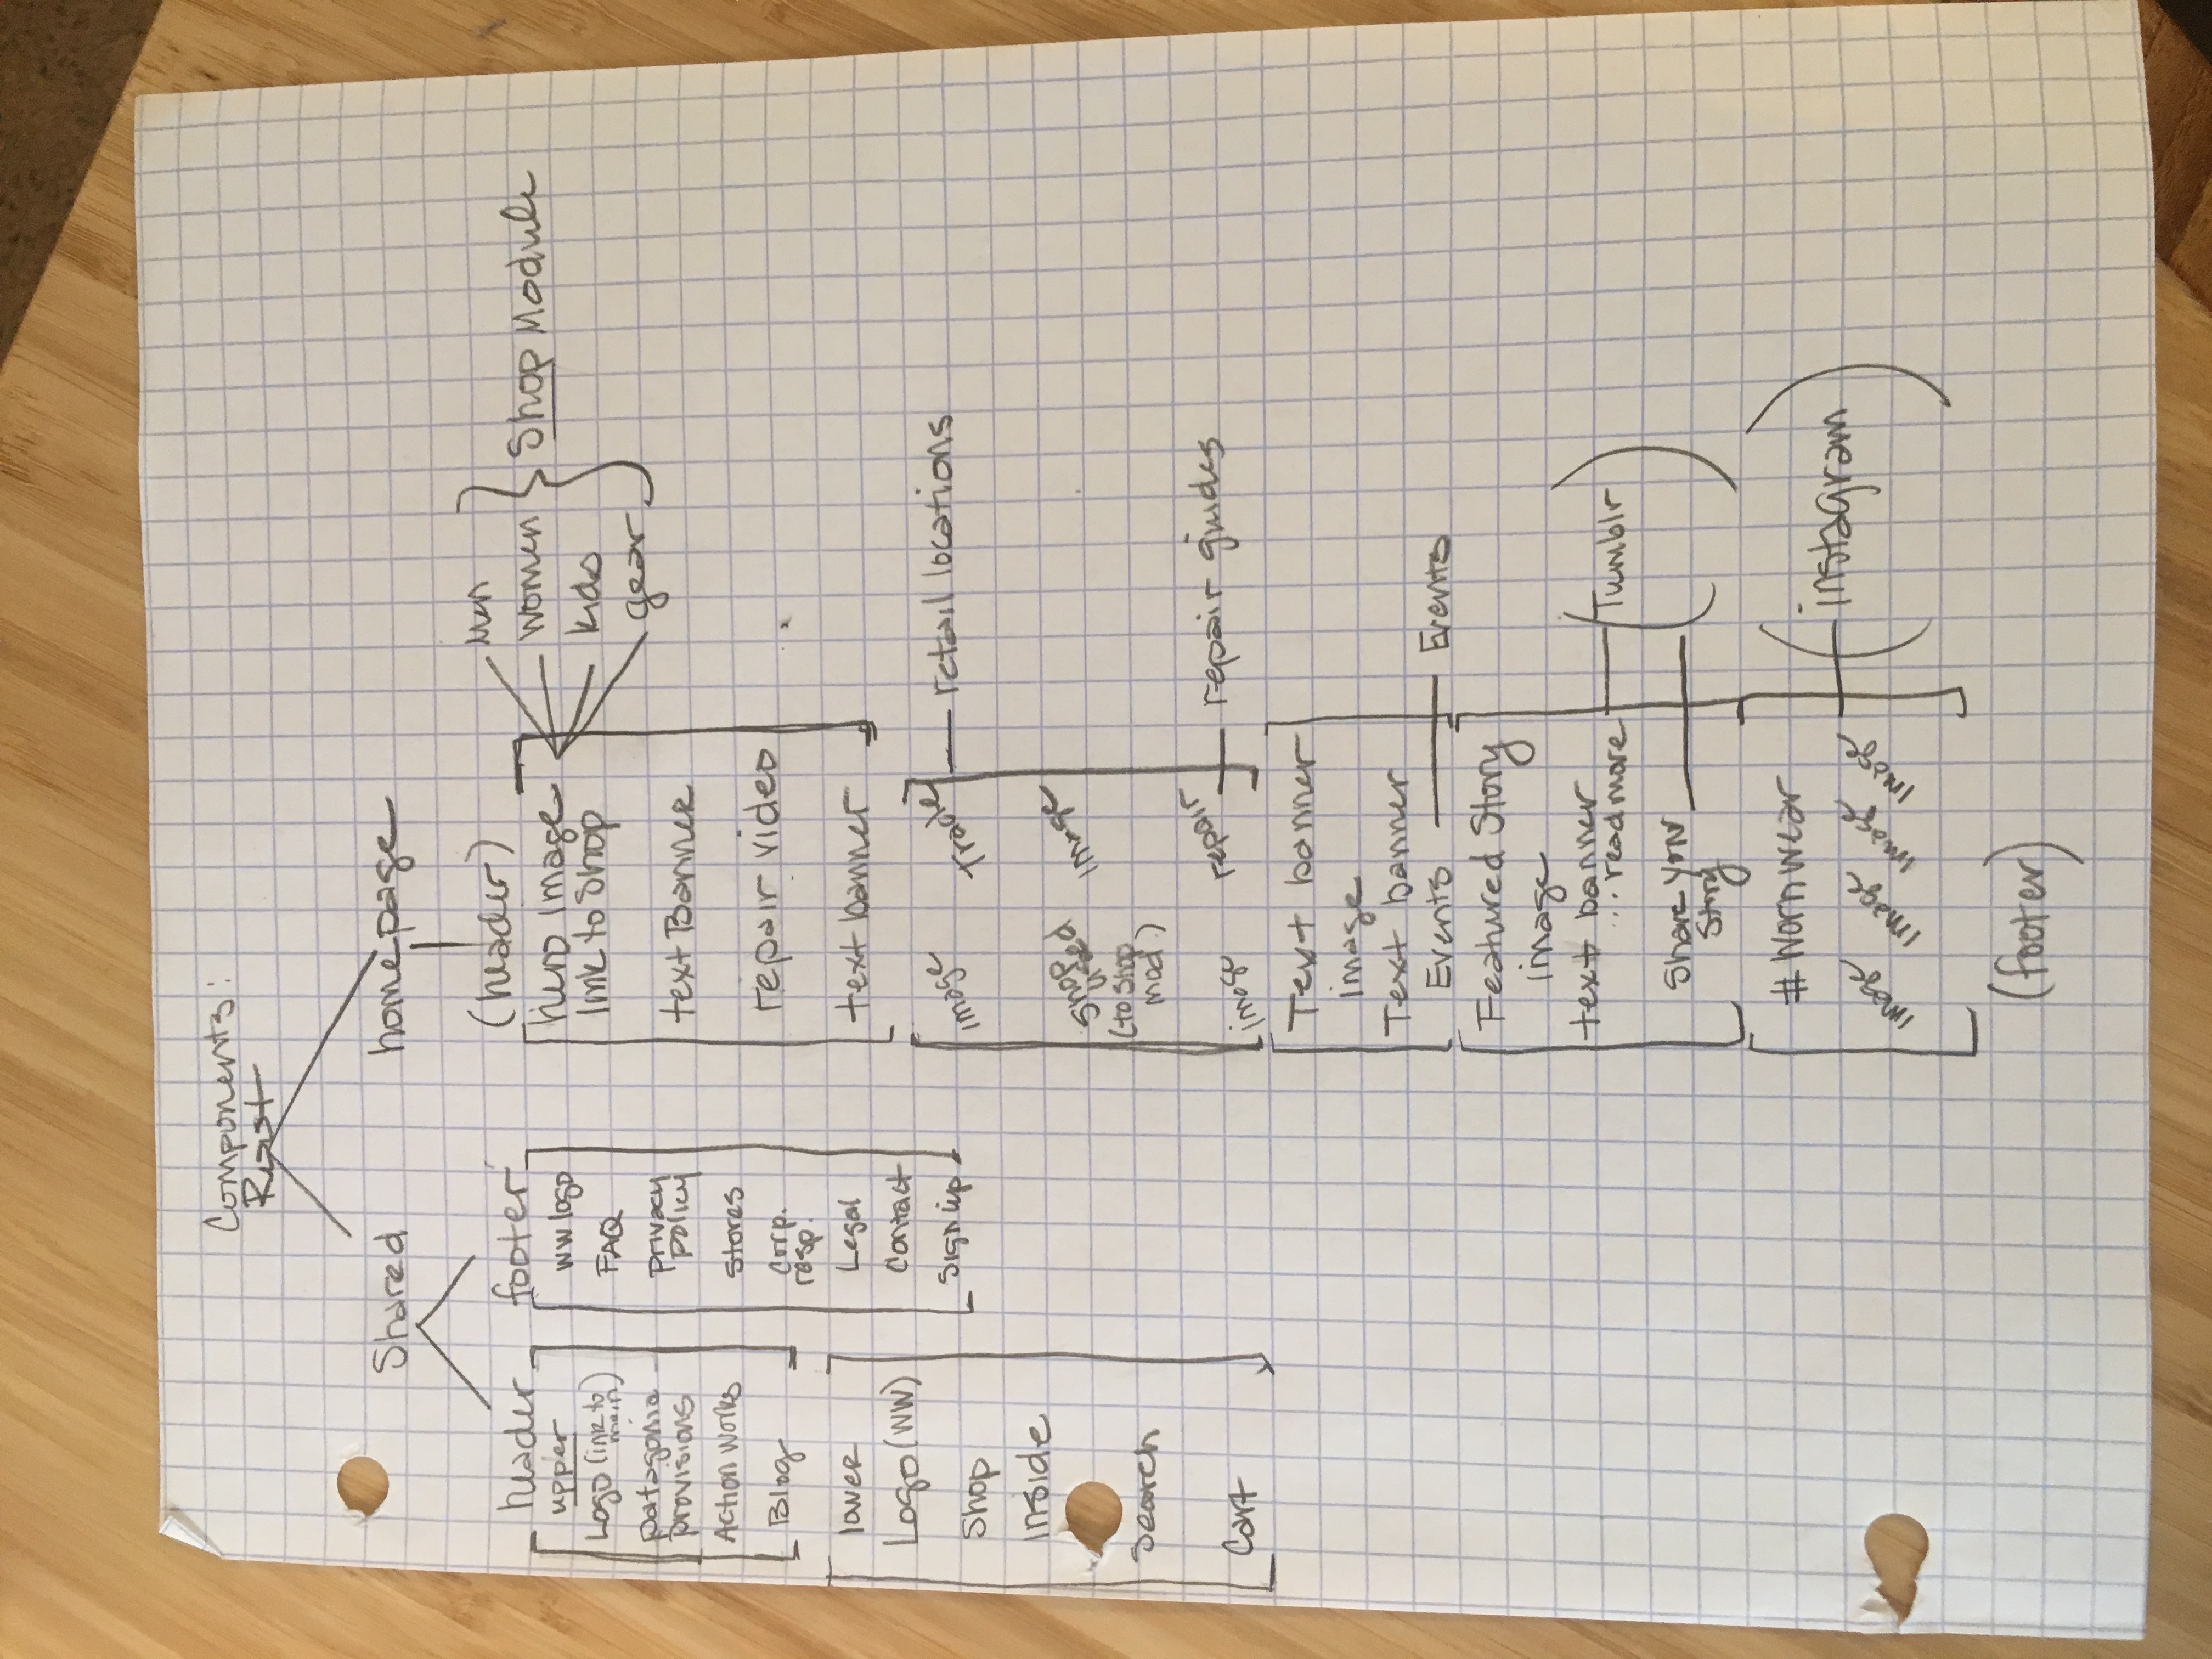 Components:
Shared
homepage
header
upper
Logo (link to
main)
patagonia
provisions
Action Works
Blog
lower
Logo (WW)
Shop
Inside
Search
Cart
footer
WW logo
FAQ
privacy
policy
Stores
Corp.
resp.
Legal
Contact
Sign up
(header)
hero image
link to Shop
Men
Women
kids
gear
Shop Module
text Banner
repair video
text banner
image Trade
retail locations
Shop
used
(to Shop
mod.)
image
image repair
repair guides
Text banner
image
Text banner
Events
Events
Featured Story
image
text banner
... read more
Tumblr
Share your
Story
# Worn wear
image image image image
instagram
(footer)